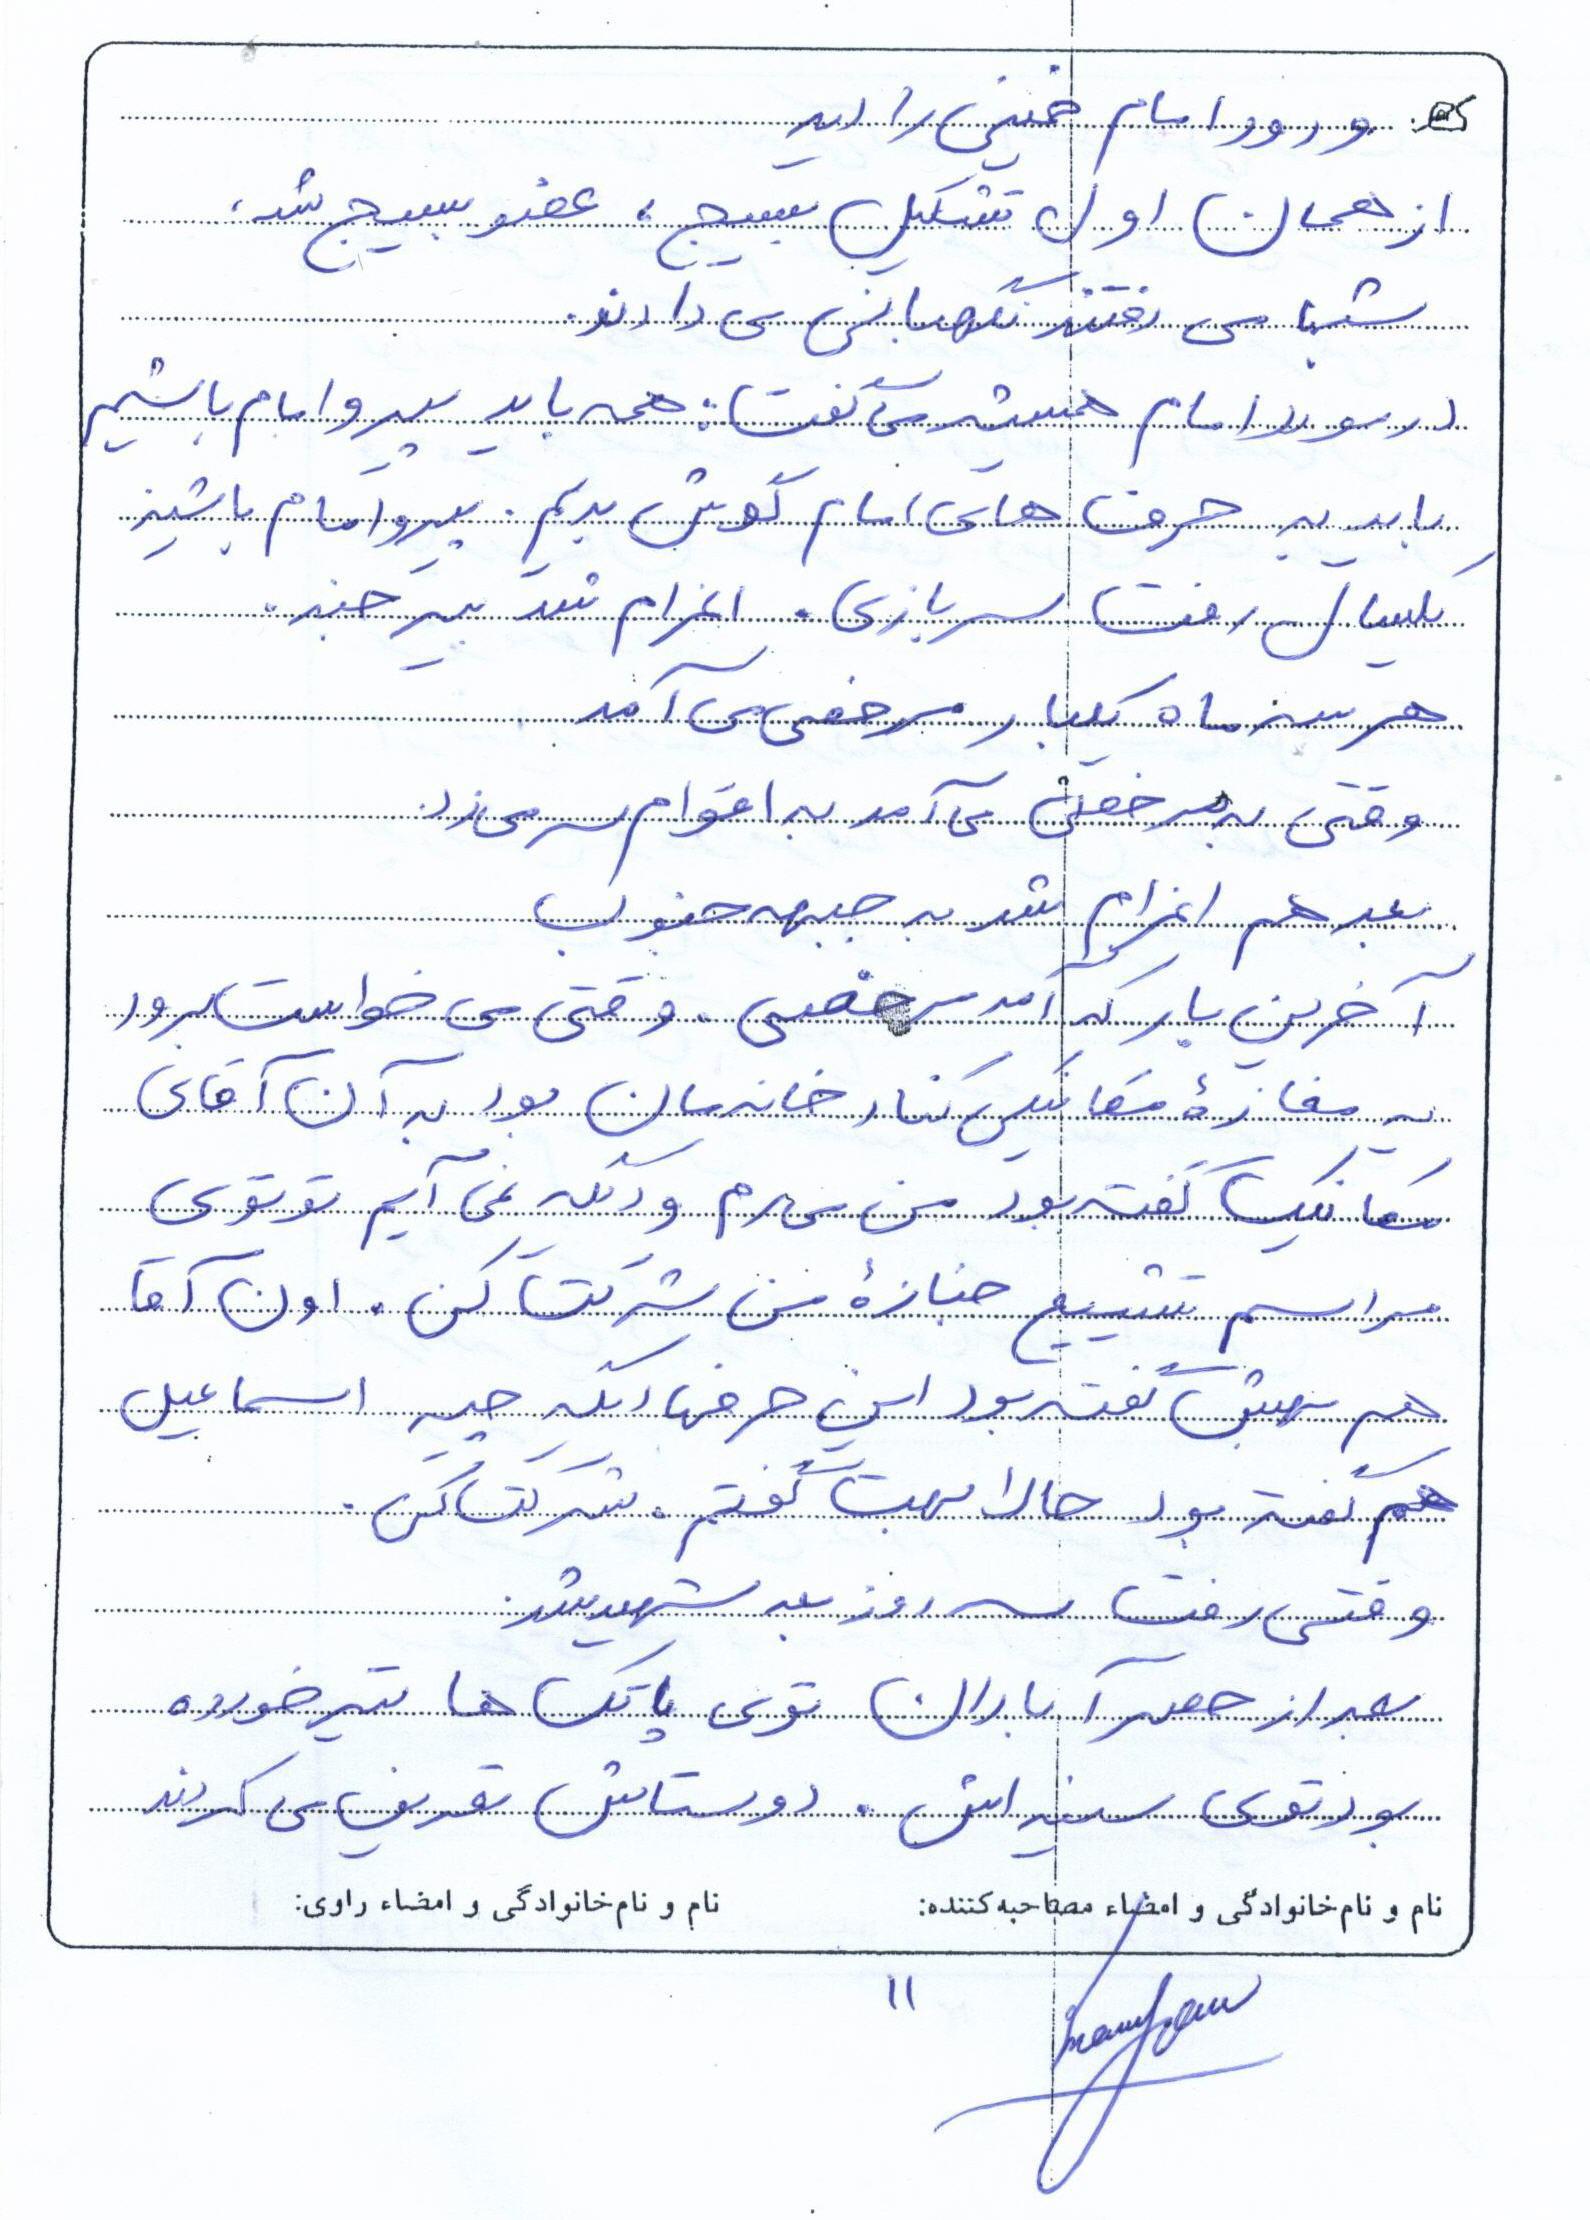 ورود امام خمینی را دید
از همان اول تشکیل بسیج، عضو بسیج شد،
شبها می رفتند نگهبانی می دادند.
در مورد امام همیشه می گفت: همه باید پیرو امام باشیم
باید به حرف های امام گوش بدیم. پیرو امام باشید
یکسال رفت سربازی. اعزام شد بیرجند.
هر سه ماه یکبار مرخصی می آمد
وقتی به مرخصی می آمد به اقوام سر می زد.
بعد هم اعزام شد به جبهه جنوب
آخرین بار که آمد مرخصی. وقتی می خواست برود
یه مغازهٔ مکانیکی کنار خانه مان بود به آن آقای
مکانیک گفته بود من می رم و دیگه نمی آیم تو توی
مراسم تشییع جنازهٔ من شرکت کن. اون آقا
هم بهش گفته بود این حرفها دیگه چیه اسماعیل
هم گفته بود حالا بهت گفتم. شرکت کن.
وقتی رفت سه روز بعد شهید شد.
بعد از حصر آبادان توی پاتک ها تیر خورده
بود توی سینه اش. دوستاش تعریف می کردند
نام و نام خانوادگی و امضاء مصاحبه کننده: نام و نام خانوادگی و امضاء راوی:
۱۱